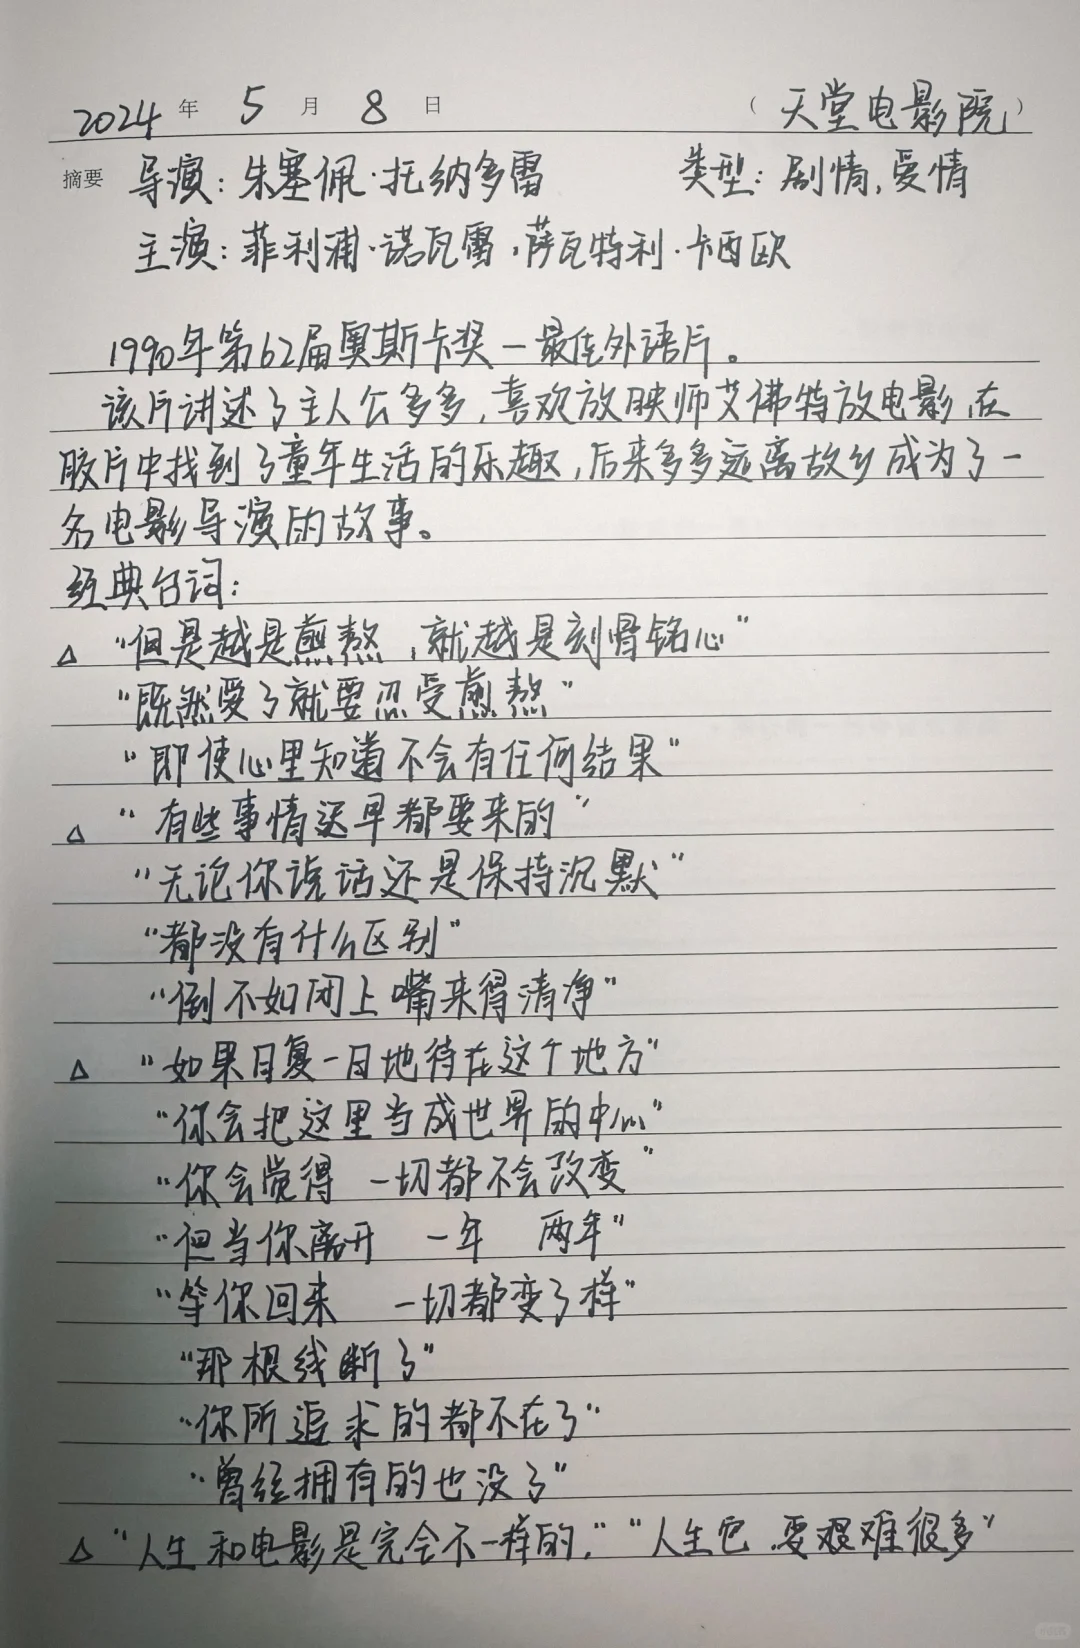 2024年 5月 8日 （天堂电影院）
摘要 导演：朱塞佩·托纳多雷 类型：剧情,爱情
主演：菲利浦·诺瓦雷,萨瓦特利·卡西欧
1990年第62届奥斯卡奖—最佳外语片。
该片讲述了主人公多多,喜欢放映师艾佛特放电影,在
胶片中找到了童年生活的乐趣,后来多多远离故乡成为了一
名电影导演的故事。
经典台词：
△ “但是越是煎熬,就越是刻骨铭心”
“既然爱了就要忍受煎熬”
“即使心里知道不会有任何结果”
△ “有些事情迟早都要来的”
“无论你说话还是保持沉默”
“都没有什么区别”
“倒不如闭上嘴来得清净”
△ “如果日复一日地待在这个地方”
“你会把这里当成世界的中心”
“你会觉得 一切都不会改变”
“但当你离开 一年 两年”
“等你回来 一切都变了样”
“那根线断了”
“你所追求的都不在了”
“曾经拥有的也没了”
△ “人生和电影是完全不一样的,” “人生它,要艰难很多”